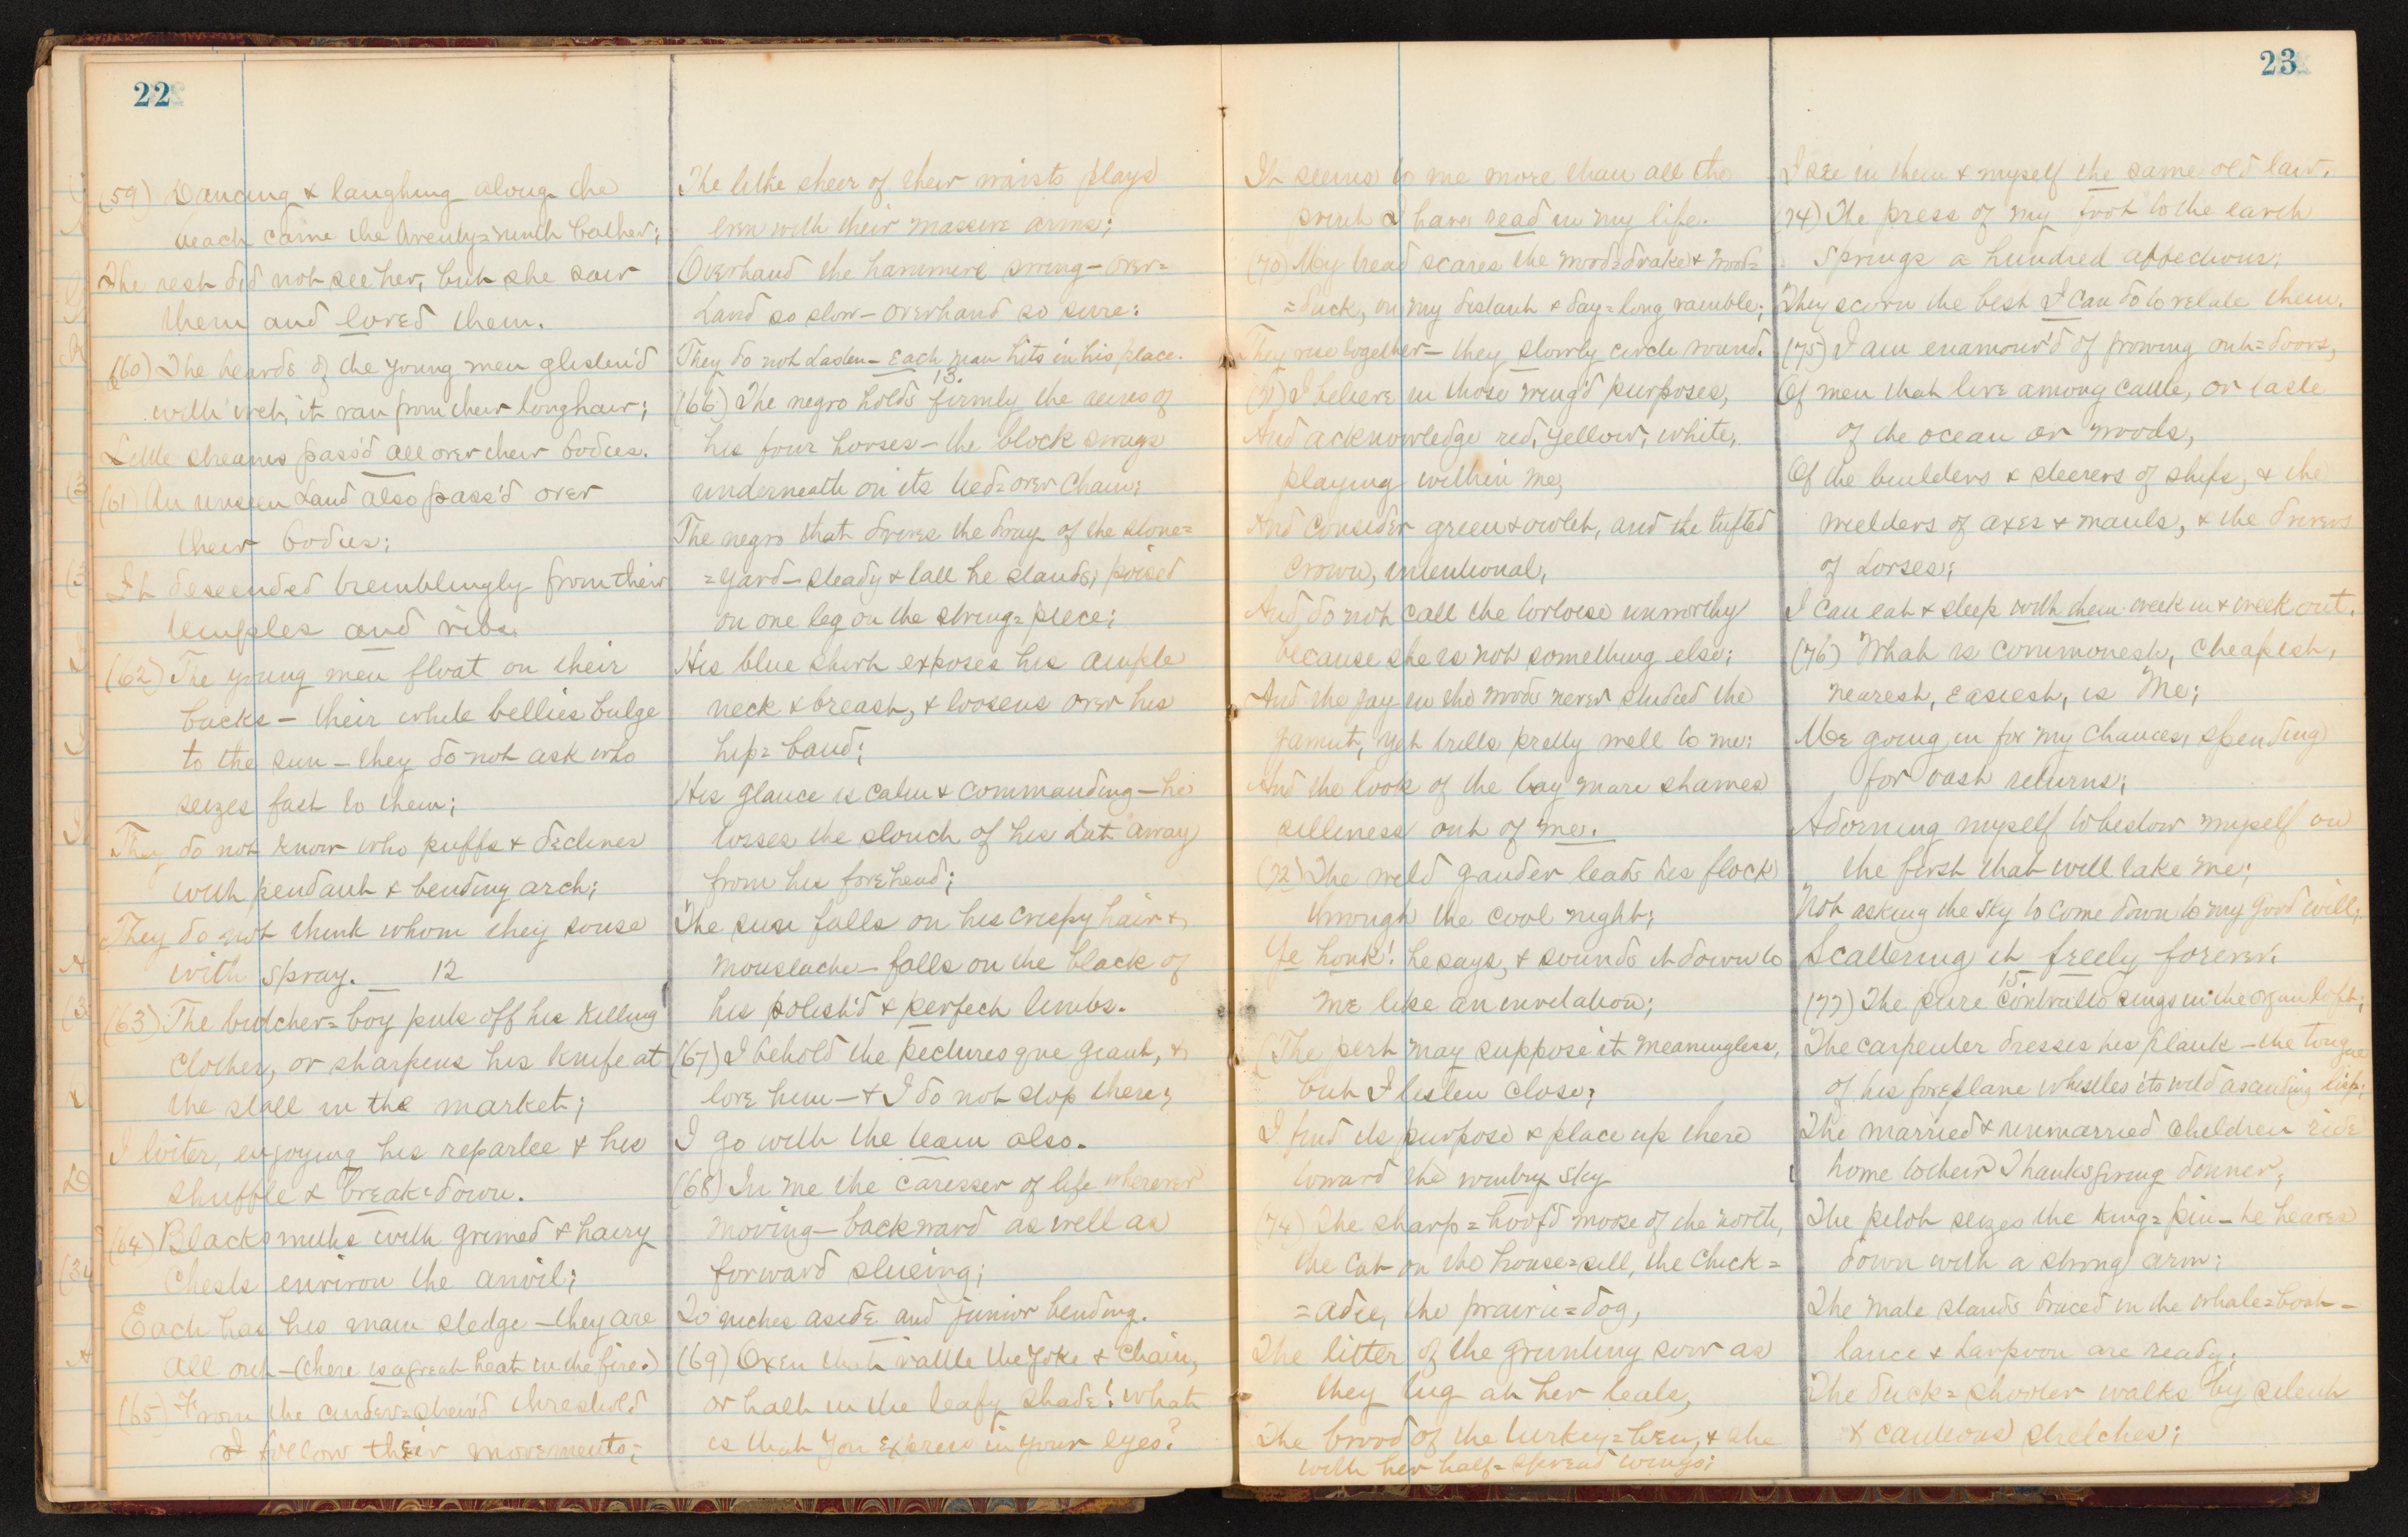 22
(59) Dancing & laughing along the
beach came the twenty=ninth bather;
The rest did not see her, but she saw
them and loved them.
(60) The beards of the young men glisten'd
with wet, it ran from their long hair;
Little streams pass'd all over their bodies.
(61) An unseen hand also pass'd over
their bodies;
It descended tremblingly from their
temples and ribs.
(62) The young men float on their
backs – their white bellies bulge
to the sun – they do not ask who
seizes fast to them;
They do not know who puffs & declines
with pendant & bending arch;
They do not think whom they souse
with spray. 12
(63) The butcher=boy puts off his killing
clothes, or sharpens his knife at
the stall in the market;
I loiter, enjoying his repartee & his
shuffle & break=down.
(64) Blacksmiths with grimed & hairy
chests environ the anvil;
Each has his main sledge – they are
all out – (there is a great heat in the fire.)
(65) From the cinder=strew'd threshold
I follow their movements;
The lithe sheer of their waists plays
even with their massive arms;
Overhand the hammers swing – over=
hand so slow – overhand so sure:
They do not hasten – Each man hits in his place.
13.
(66) The negro holds firmly the reins of
his four horses – the block swags
underneath on its tied=over chain;
The negro that drives the dray of the stone=
=yard – steady & tall he stands, poised
on one leg on the string=piece;
His blue shirt exposes his ample
neck & breast, & loosens over his
hip=band;
His glance is calm & commanding – he
tosses the slouch of his hat away
from his forehead;
The sun falls on his crispy hair &
moustache – falls on the black of
his polish'd & perfect limbs.
(67) I behold the picturesque giant, &
love him – & I do not stop there;
I go with the team also.
(68) In me the caresser of life wherever
moving – backward as well as
forward slueing;
To niches aside and junior bending.
(69) Oxen that rattle the yoke & chain,
or halt in the leafy shade! what
is that you express in your eyes?
23
It seems to me more than all the
print I have read in my life.
(70) My tread scares the wood=drake & wood=
=duck, on my distant & day=long ramble;
They rise together – they slowly circle round.
(71) I believe in those wing'd purposes,
And acknowledge red, yellow, white,
playing within me,
And consider green & violet, and the tufted
crown, intentional,
And do not call the tortoise unworthy
because she is not something else;
And the jay in the woods never studied the
gamut, yet trills pretty well to me:
And the look of the bay mare shames
silliness out of me.
(72) The wild gander leads his flock
through the cool night;
Ya honk! he says, & sounds it down to
me like an invitation;
(The pert may suppose it meaningless,
but I listen close;
I find its purpose & place up there
toward the wintry sky
(74) The sharp=hoof'd moose of the north,
the cat on the house=sill, the chick=
=adee, the prairie=dog,
The litter of the grunting sow as
they tug at her teats,
The brood of the turkey=hen, & she
with her half=spread wings;
I see in them & myself the same old law.
(74) The press of my foot to the earth
springs a hundred affections;
They scorn the best I can do to relate them.
(75) I am enamour'd of growing out=doors,
Of men that live among cattle, or taste
of the ocean or woods,
Of the builders & steerers of ships, & the
wielders of axes & mauls, & the drivers
of horses;
I can eat & sleep with them week in & week out.
(76) What is commonest, cheapest,
nearest, easiest, is Me;
Me going in for my chances, spending
for vast returns;
Adorning myself to bestow myself on
the first that will take me;
Not asking the sky to come down to my good will;
Scattering it freely forever.
15.
(77) The pure contralto sings in the organ loft;
The carpenter dresses his plank – the tongue
of his foreplane whistles its wild ascending lisp;
The married & unmarried children ride
home to their Thanksgiving dinner;
The pilot seizes the king=pin – he heaves
down with a strong arm;
The mate stands braced in the whale=boat –
lance & harpoon are ready;
The duck=shooter walks by silent
& cautious stretches;